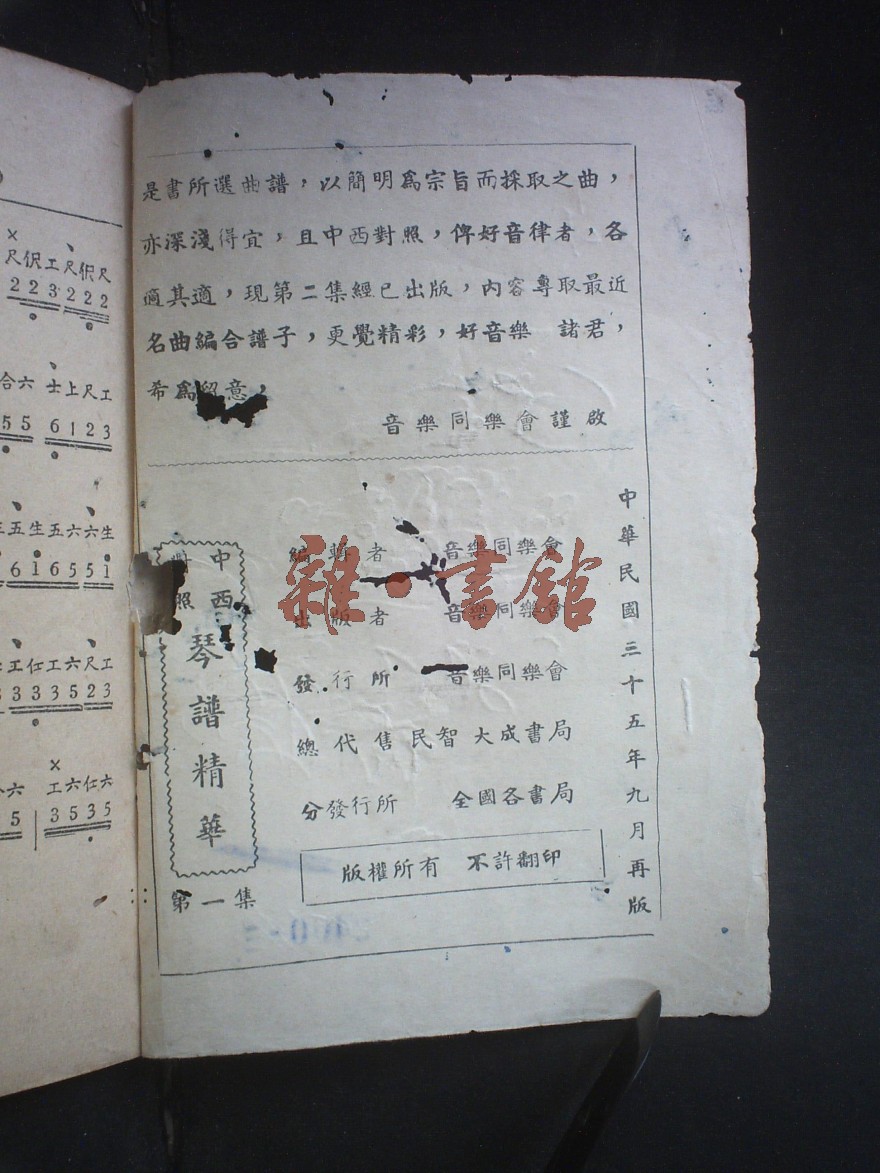 是書所選曲譜，以簡明爲宗旨而採取之曲，
亦深淺得宜，且中西對照，俾好音律者，各
適其適，現第二集經已出版，內容專取最近
名曲編合譜子，更覺精彩，好音樂　諸君，
希爲留意，
音樂同樂會謹啟
中華民國三十五年九月再版
編輯者　音樂同樂會
出版者　音樂同樂會
發行所　音樂同樂會
總代售 民智 大成書局
分發行所　全國各書局
版權所有　不許翻印
中西
對照
琴譜精華
第一集
雜·書館
尺伬工尺伬尺
2 2 3 2 2 2
合六 士上尺工
5 5 6 1 2 3
五生五六六生
6 1 6 5 5 1
工仜工六尺工
3 3 3 5 2 3
六 工六仜六
5 3 5 3 5